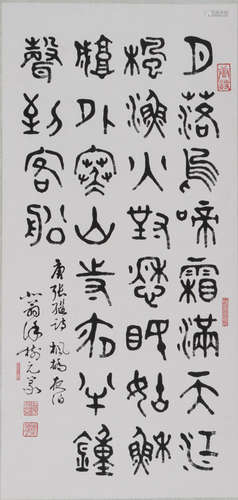 月落烏啼霜滿天江
楓漁火對愁眠姑蘇
城外寒山寺夜半鐘
聲到客船
唐張繼詩楓橋夜泊
翁樹元篆